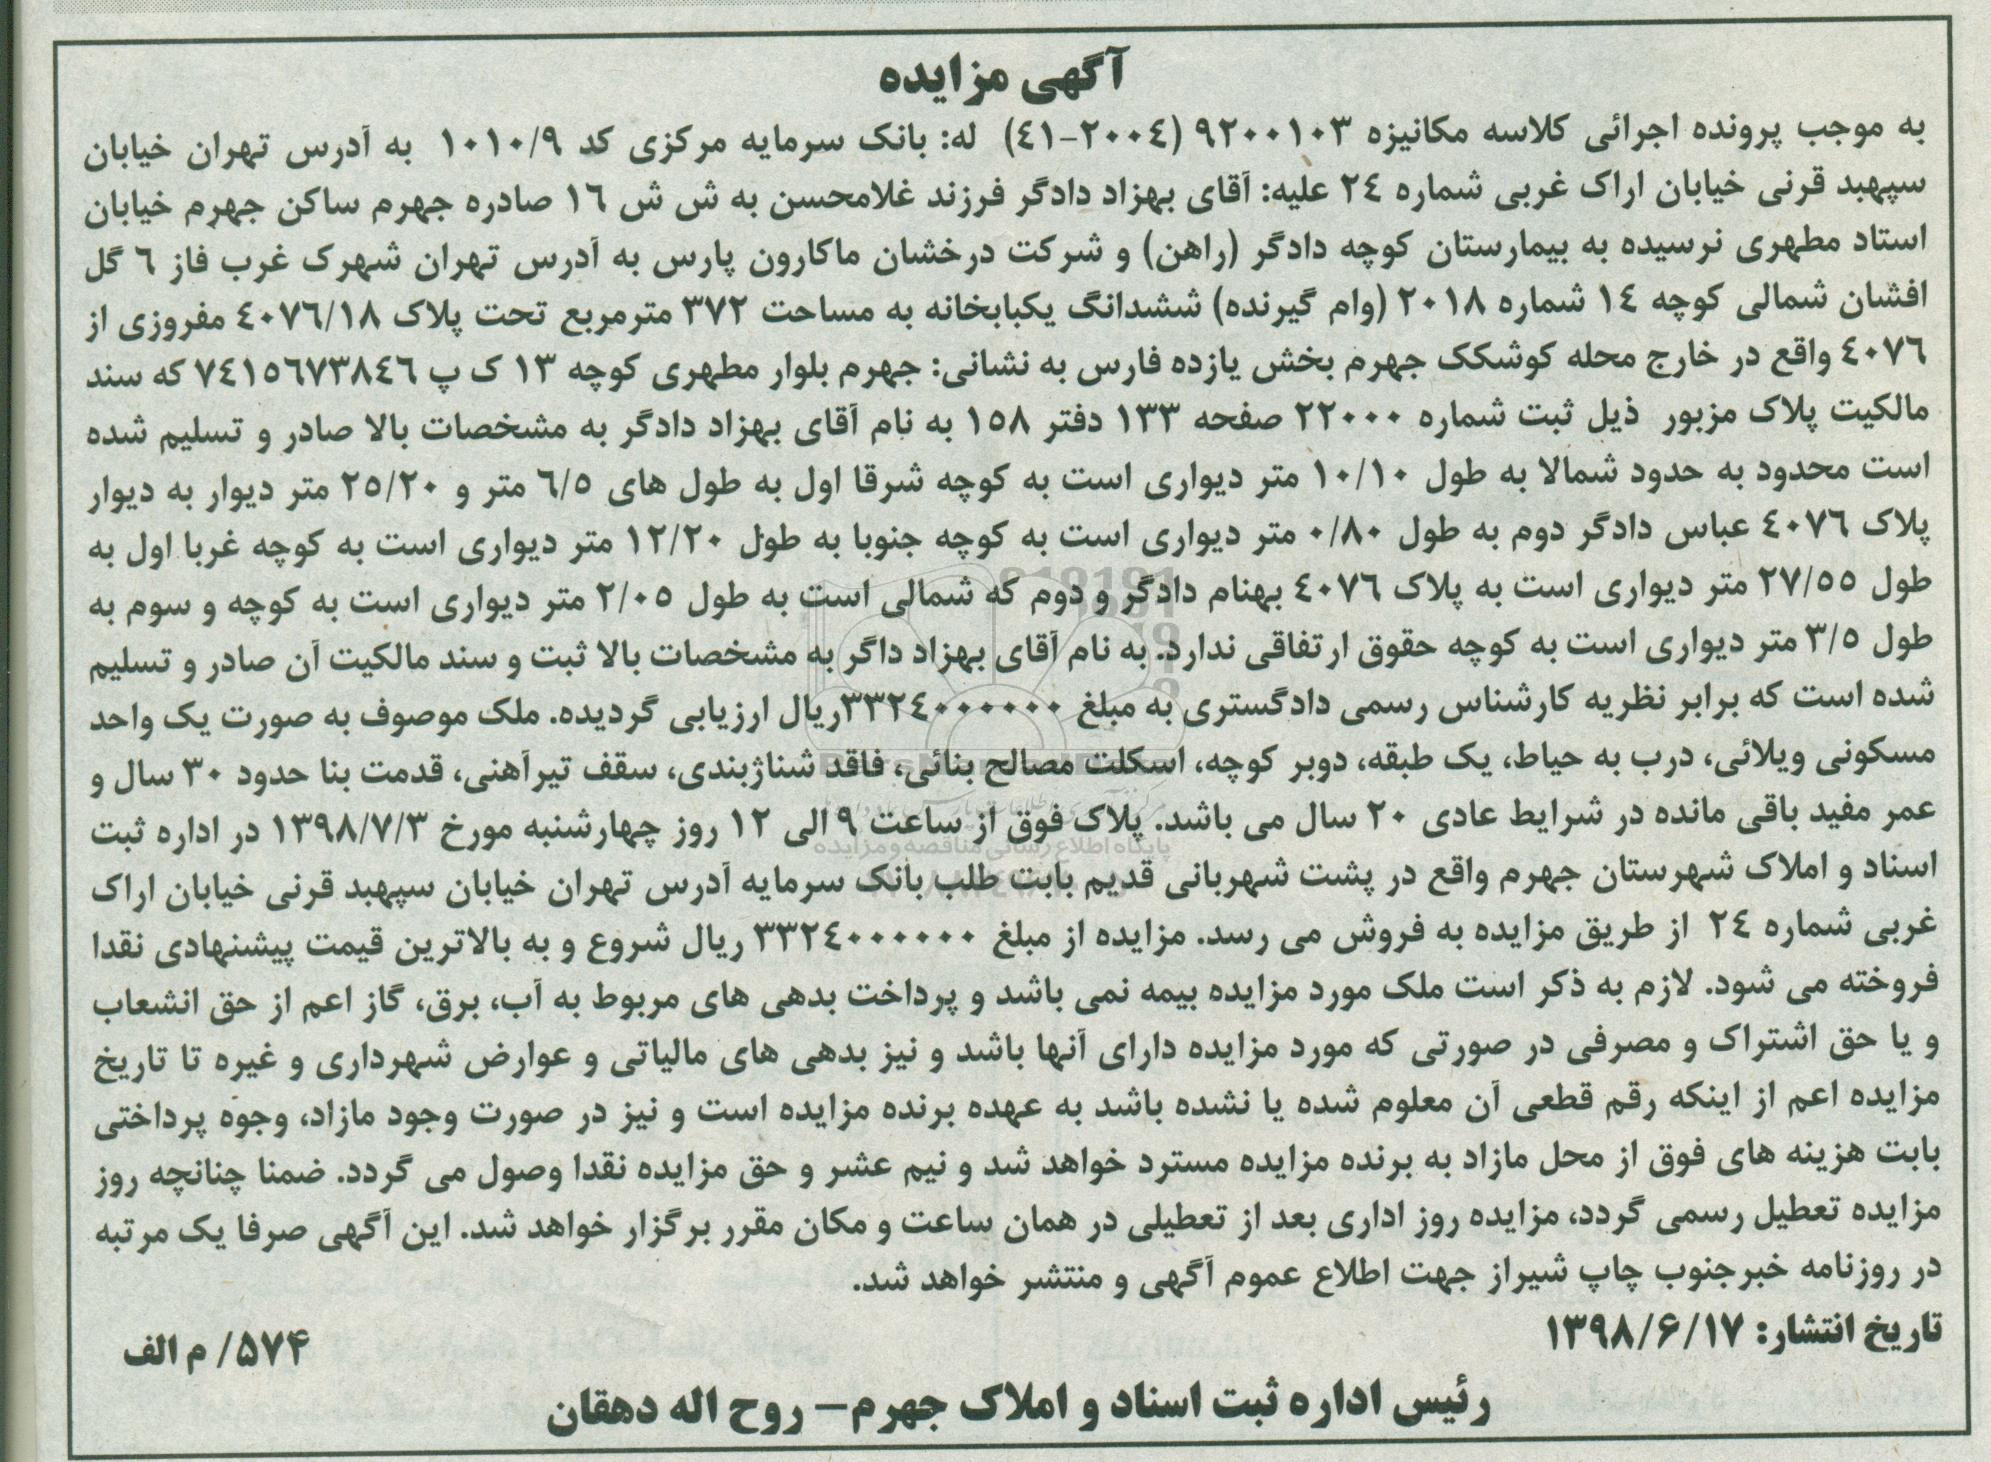 آگهی مزایده
به موجب پرونده اجرائی کلاسه مکانیزه ۹۲۰۰۱۰۳ (۲۰۰٤-٤۱) له: بانک سرمایه مرکزی کد ۱۰۱۰/۹ به آدرس تهران خیابان
سپهبد قرنی خیابان اراک غربی شماره ۲٤ علیه: آقای بهزاد دادگر فرزند غلامحسن به ش ش ۱٦ صادره جهرم ساکن جهرم خیابان
استاد مطهری نرسیده به بیمارستان کوچه دادگر (راهن) و شرکت درخشان ماکارون پارس به آدرس تهران شهرک غرب فاز ٦ گل
افشان شمالی کوچه ۱٤ شماره ۲۰۱۸ (وام گیرنده) ششدانگ یکبابخانه به مساحت ۳۷۲ مترمربع تحت پلاک ٤۰۷٦/۱۸ مفروزی از
٤۰۷٦ واقع در خارج محله کوشکک جهرم بخش یازده فارس به نشانی: جهرم بلوار مطهری کوچه ۱۳ ک پ ۷٤۱٥٦۷۳۸٤٦ که سند
مالکیت پلاک مزبور ذیل ثبت شماره ۲۲۰۰۰ صفحه ۱۳۳ دفتر ۱٥۸ به نام آقای بهزاد دادگر به مشخصات بالا صادر و تسلیم شده
است محدود به حدود شمالا به طول ۱۰/۱۰ متر دیواری است به کوچه شرقا اول به طول های ٦/٥ متر و ۲٥/۲۰ متر دیوار به دیوار
پلاک ٤۰۷٦ عباس دادگر دوم به طول ۰/۸۰ متر دیواری است به کوچه جنوبا به طول ۱۲/۲۰ متر دیواری است به کوچه غربا اول به
طول ۲۷/٥٥ متر دیواری است به پلاک ٤۰۷٦ بهنام دادگر و دوم که شمالی است به طول ۲/۰٥ متر دیواری است به کوچه و سوم به
طول ۳/٥ متر دیواری است به کوچه حقوق ارتفاقی ندارد. به نام آقای بهزاد داگر به مشخصات بالا ثبت و سند مالکیت آن صادر و تسلیم
شده است که برابر نظریه کارشناس رسمی دادگستری به مبلغ ۳۳۲٤۰۰۰۰۰۰ریال ارزیابی گردیده. ملک موصوف به صورت یک واحد
مسکونی ویلائی، درب به حیاط، یک طبقه، دوبر کوچه، اسکلت مصالح بنائی، فاقد شناژبندی، سقف تیرآهنی، قدمت بنا حدود ۳۰ سال و
عمر مفید باقی مانده در شرایط عادی ۲۰ سال می باشد. پلاک فوق از ساعت ۹ الی ۱۲ روز چهارشنبه مورخ ۱۳۹۸/۷/۳ در اداره ثبت
اسناد و املاک شهرستان جهرم واقع در پشت شهربانی قدیم بابت طلب بانک سرمایه آدرس تهران خیابان سپهبد قرنی خیابان اراک
غربی شماره ۲٤ از طریق مزایده به فروش می رسد. مزایده از مبلغ ۳۳۲٤۰۰۰۰۰۰ ریال شروع و به بالاترین قیمت پیشنهادی نقدا
فروخته می شود. لازم به ذکر است ملک مورد مزایده بیمه نمی باشد و پرداخت بدهی های مربوط به آب، برق، گاز اعم از حق انشعاب
و یا حق اشتراک و مصرفی در صورتی که مورد مزایده دارای آنها باشد و نیز بدهی های مالیاتی و عوارض شهرداری و غیره تا تاریخ
مزایده اعم از اینکه رقم قطعی آن معلوم شده یا نشده باشد به عهده برنده مزایده است و نیز در صورت وجود مازاد، وجوه پرداختی
بابت هزینه های فوق از محل مازاد به برنده مزایده مسترد خواهد شد و نیم عشر و حق مزایده نقدا وصول می گردد. ضمنا چنانچه روز
مزایده تعطیل رسمی گردد، مزایده روز اداری بعد از تعطیلی در همان ساعت و مکان مقرر برگزار خواهد شد. این آگهی صرفا یک مرتبه
در روزنامه خبرجنوب چاپ شیراز جهت اطلاع عموم آگهی و منتشر خواهد شد.
تاریخ انتشار: ۱۳۹۸/۶/۱۷
۵۷۴/ م الف
رئیس اداره ثبت اسناد و املاک جهرم– روح اله دهقان
پایگاه اطلاع رسانی مناقصه و مزایده